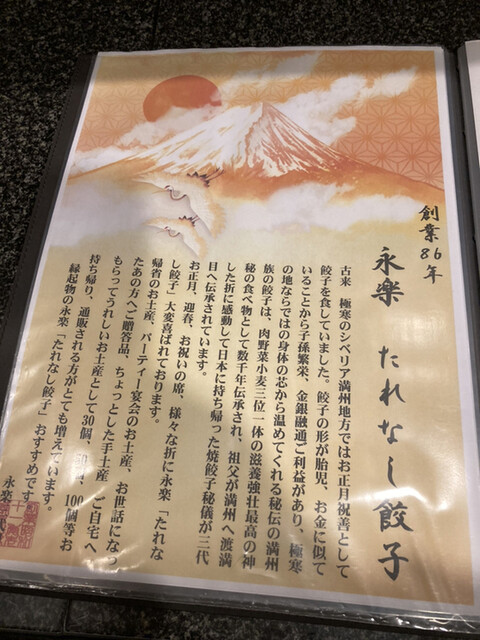 創業86年
永楽 たれなし餃子
古来 極寒のシベリア満州地方ではお正月祝善として
餃子を食していました。餃子の形が胎児、お金に似て
いることから子孫繁栄、金銀融通ご利益があり、極寒
の地ならではの身体の芯から温めてくれる秘伝の満州
族の餃子は、肉野菜小麦三位一体の滋養強壮最高の神
秘の食べ物として数千年伝承され、祖父が満州へ渡満
した折に感動して日本に持ち帰った焼餃子秘儀が三代
目へ伝承されています。
お正月、迎春、お祝いの席、様々な折に永楽「たれな
し餃子」大変喜ばれております。
帰省のお土産、パーティー宴会のお土産、お世話になっ
たあの方へご贈答品、ちょっとした手土産、ご自宅へ
もらってうれしいお土産として30個、50個、100個等お
持ち帰り、通販される方がとても増えています。
縁起物の永楽「たれなし餃子」おすすめです
永楽